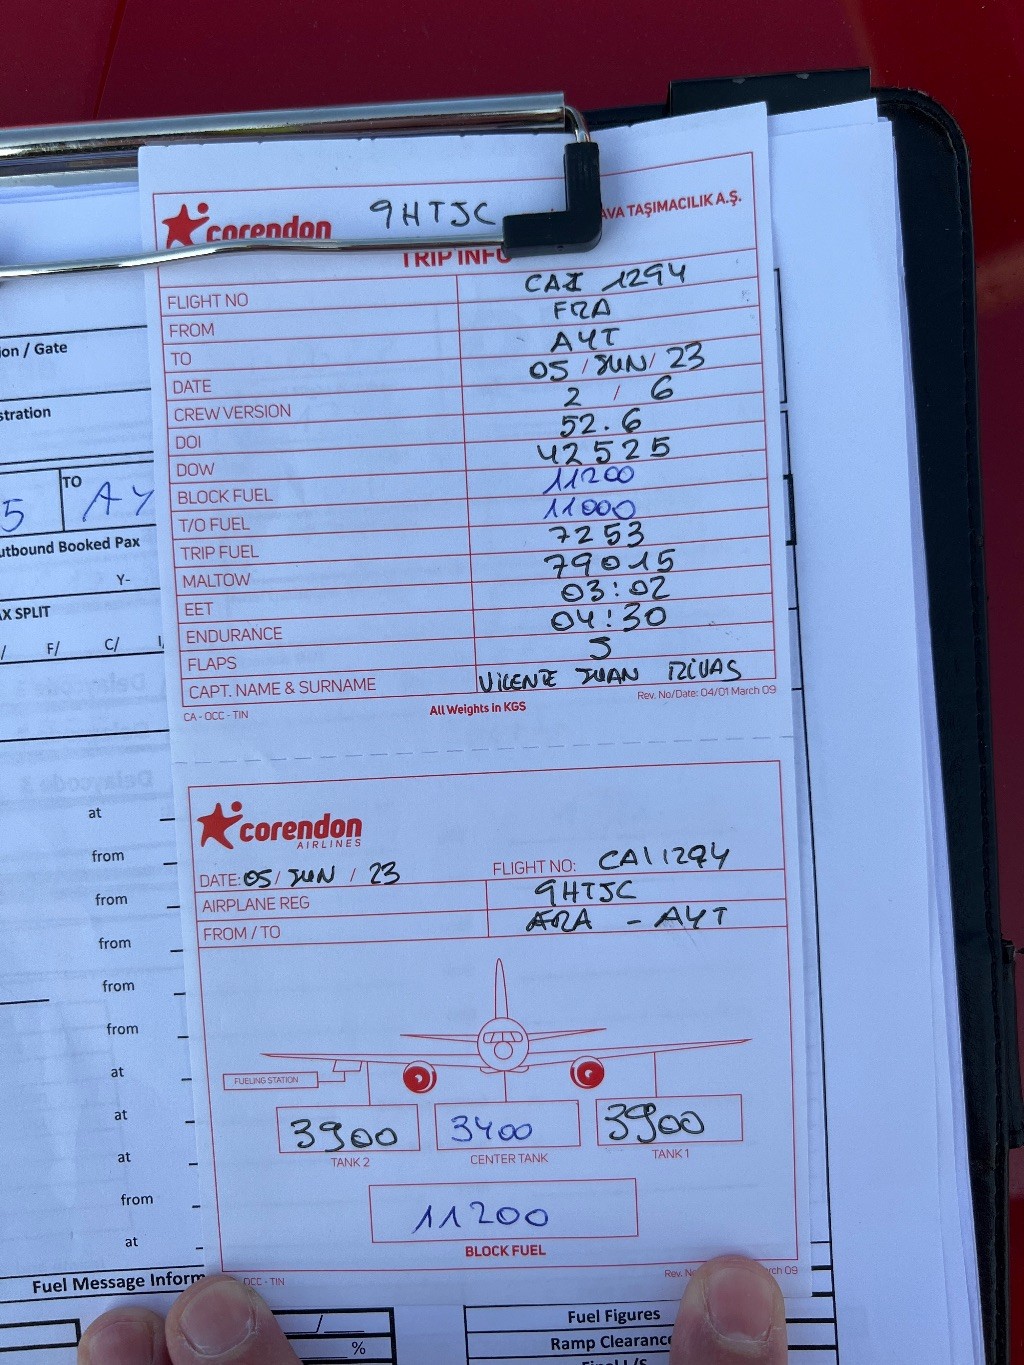 corendon 9HTJC AVA TAŞIMACILIK A.Ş.
TRIP INFO
FLIGHT NO CAI 1294
FROM FRA
TO AYT
DATE 05/JUN/23
CREW VERSION 2 / 6
DOI 52.6
DOW 42525
BLOCK FUEL 11200
T/O FUEL 11000
TRIP FUEL 7253
MALTOW 79015
EET 03:02
ENDURANCE 04:30
FLAPS 5
CAPT. NAME & SURNAME VICENTE JUAN RIVAS
CA - OCC - TIN All Weights in KGS Rev. No/Date: 04/01 March 09
corendon
AIRLINES
DATE: 05/JUN/23 FLIGHT NO: CAI1294
AIRPLANE REG 9HTJC
FROM / TO FRA - AYT
FUELING STATION
3900 3400 3900
TANK 2 CENTER TANK TANK 1
11200
BLOCK FUEL
OCC - TIN Rev. No rch 09
ion / Gate
stration
5 TO AY
utbound Booked Pax
Y-
AX SPLIT
/ F/ C/
at
from
from
from
from
from
at
at
at
from
at
Fuel Message Inform
/
%
Fuel Figures
Ramp Clearance
Final L/S